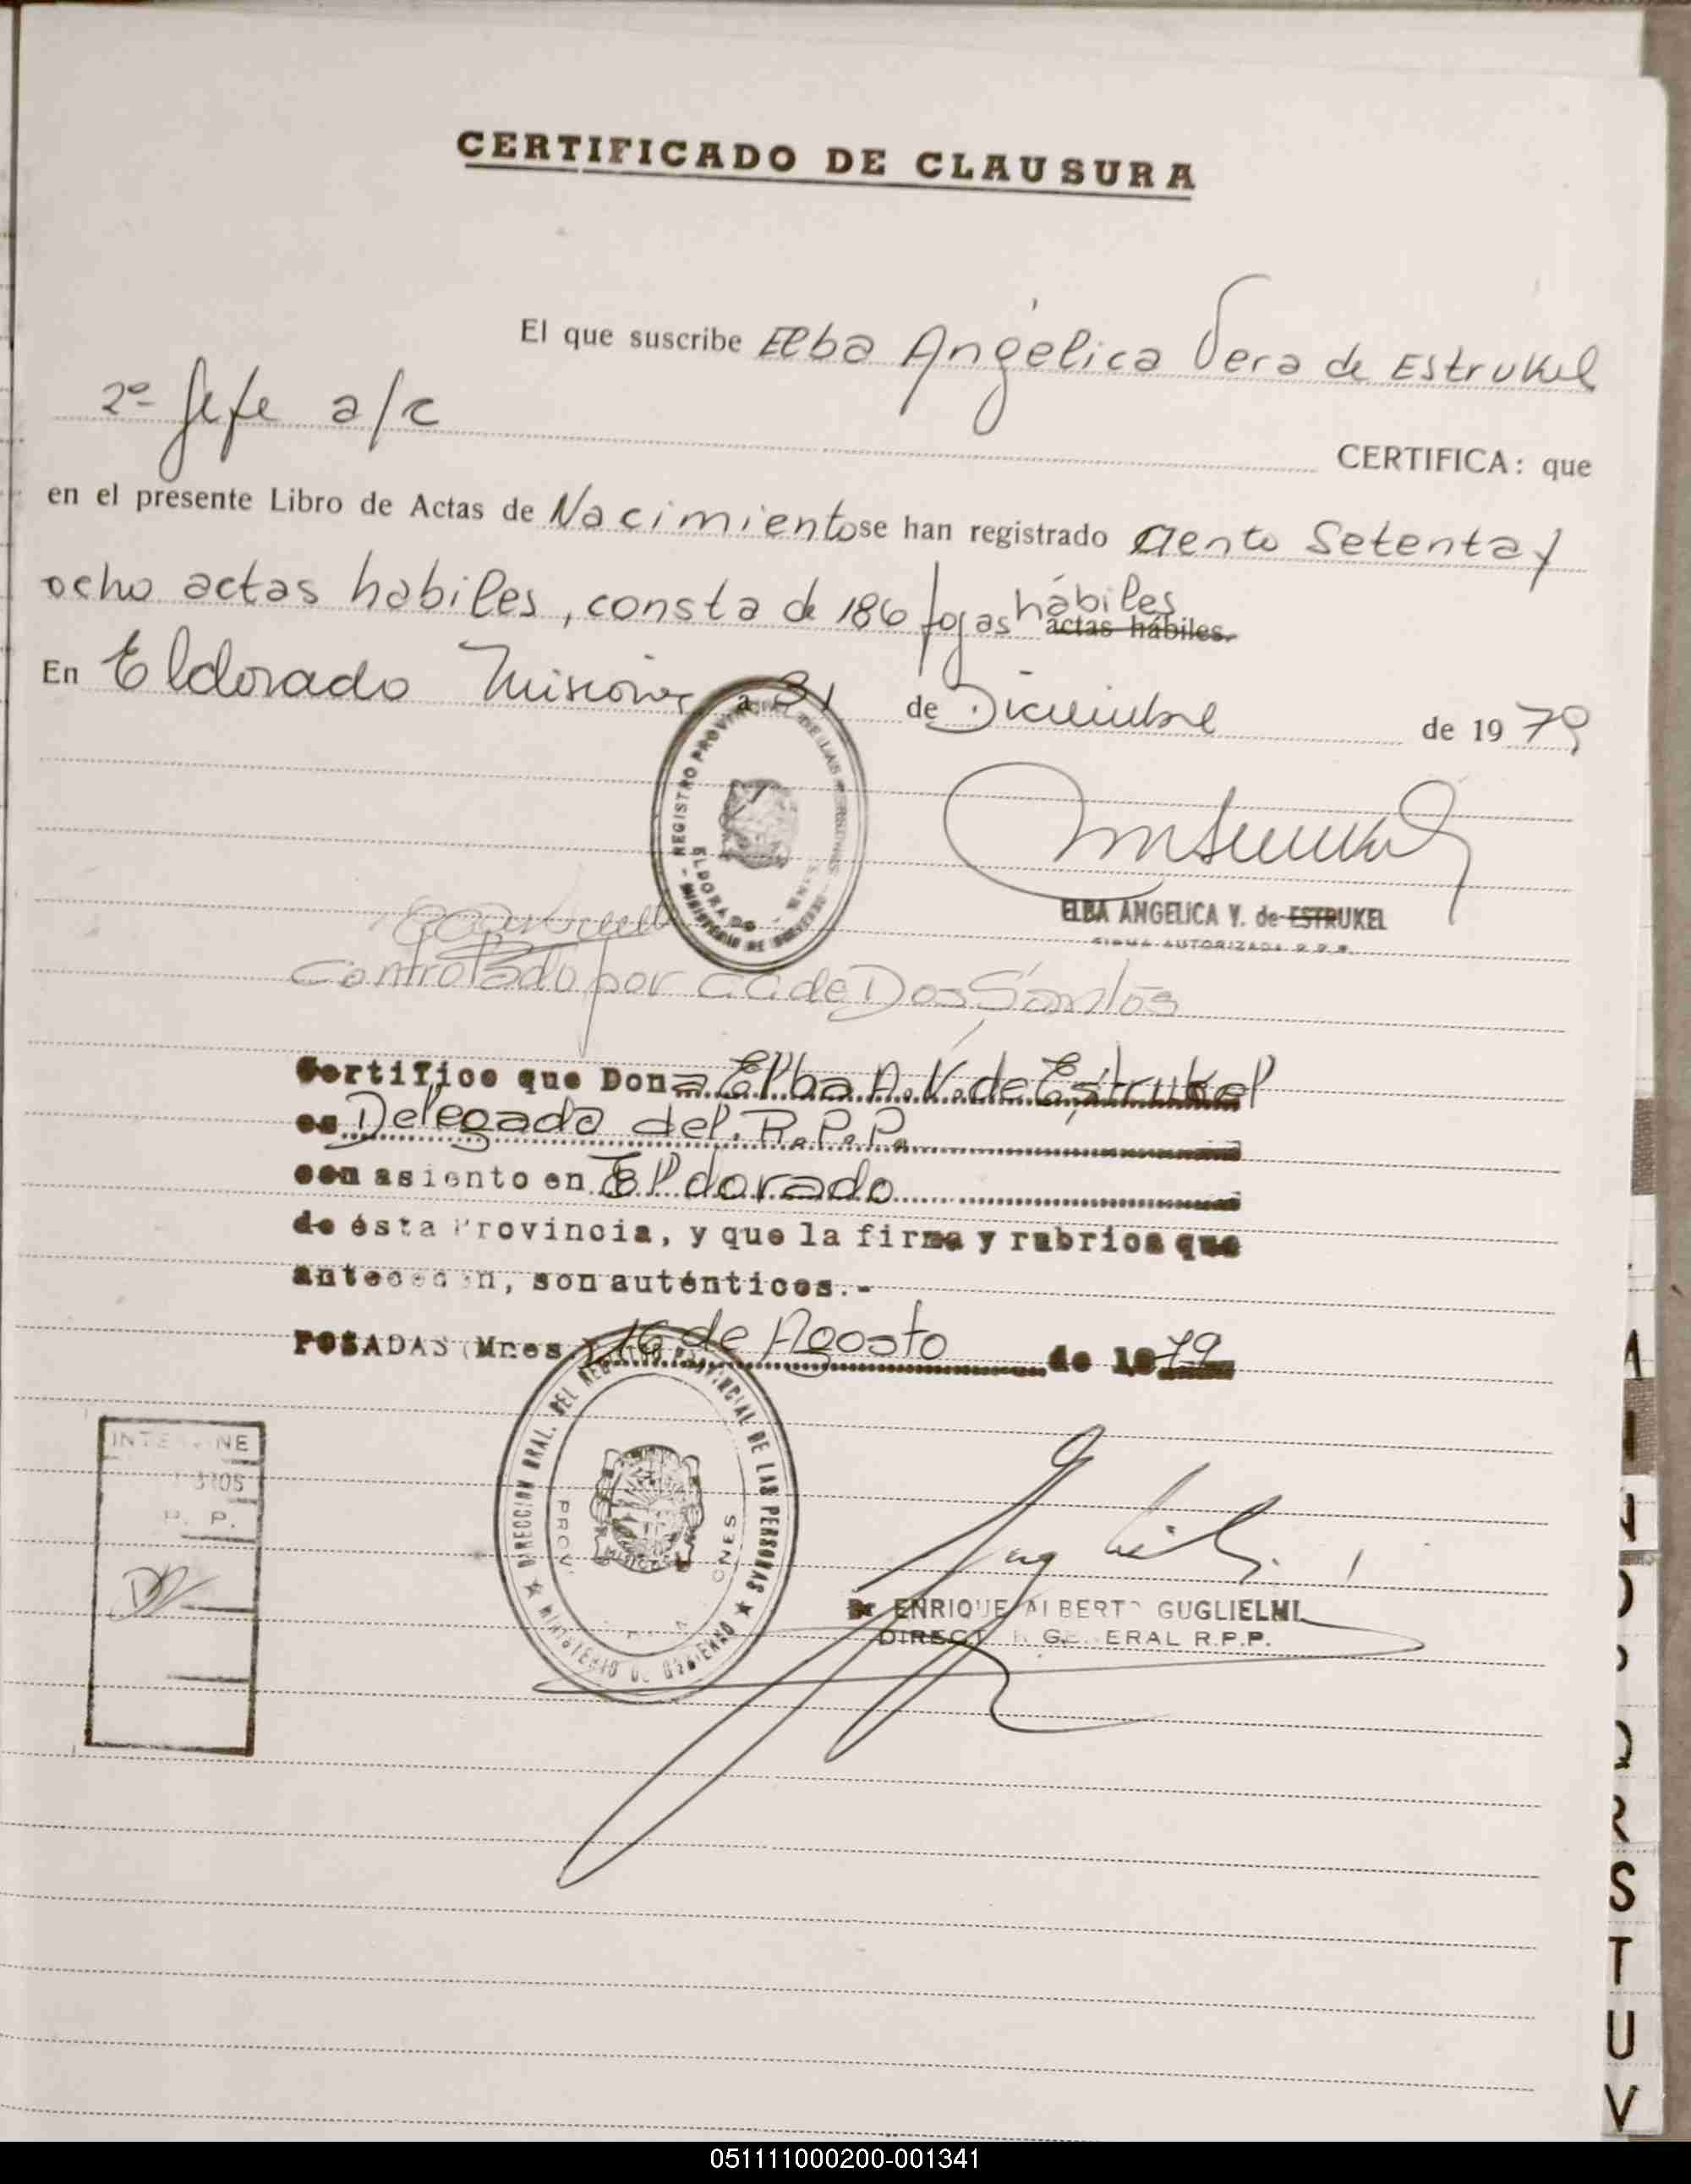 CERTIFICADO DE CLAUSURA
El que suscribe Elba Angélica Vera de Estrukel
2º Jefe a/c CERTIFICA: que
en el presente Libro de Actas de Nacimiento se han registrado ciento Setenta y
ocho actas habiles, consta de 186 fojas hábiles
actas hábiles.
En Eldorado Misiones a 31 de Diciembre de 1979
REGISTRO PROVINCIAL DE LAS PERSONAS - MINISTERIO DE GOBIERNO -
ELDORADO - MNES
ELBA ANGELICA V. de ESTRUKEL
FIRMA AUTORIZADA R.P.P.
Controlado por C.C. de Dos Santos
Certifico que Dona Elba A. V. de Estrukel
es Delegada del. R.P.P.
con asiento en Eldorado
de ésta Provincia, y que la firma y rubrica que
anteceden, son auténticos.-
POSADAS (Mnes.) 16 de Agosto de 1979
DIRECCION GRAL. DEL REGISTRO PROVINCIAL DE LAS PERSONAS ★ MINISTERIO DE GOBIERNO ★
INTERVINE
R. P.
Dr ENRIQUE ALBERTO GUGLIELMI
DIRECTOR GENERAL R.P.P.
Q
R
S
T
U
V
051111000200-001341